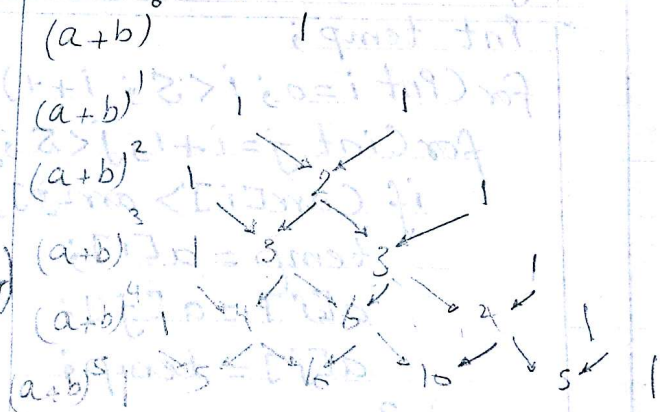 (a+b)⁰ 1
(a+b)¹ 1 1
(a+b)² 1 2 1
(a+b)³ 1 3 3 1
(a+b)⁴ 1 4 6 4 1
(a+b)⁵ 1 5 10 10 5 1